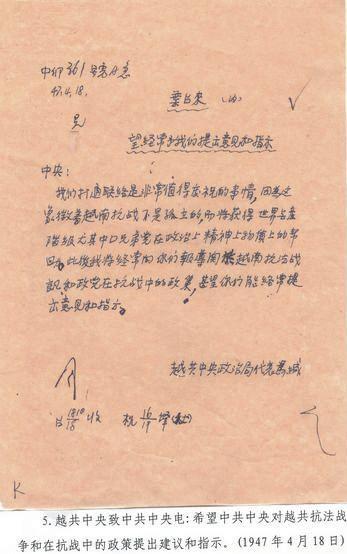 47.4.18.
望经常予我们提出意见和指示
中央:
我们打通联络是非常值得庆祝的事情,因为这
象徵着越南抗战不是孤立的而将获得世界无产
阶级尤其中国兄弟党在政治上精神上物质上的帮
此后我将经常向你们报导越南抗法战
况和政党在抗战中的政策,甚望你们能经常提
出意见和指示。
越共中央政治局代表
收
K
5. 越共中央致中共中央电: 希望中共中央对越共抗法战
争和在抗战中的政策提出建议和指示。(1947 年 4 月 18 日)